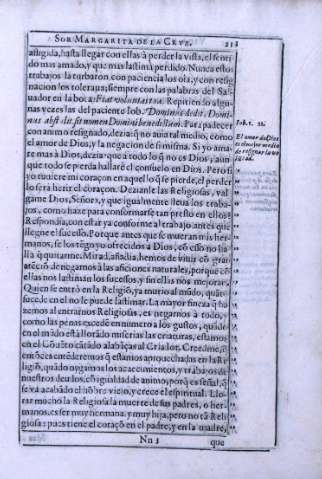 SOR MARGARITA DE LA CRVZ. 213
afligida, hasta llegar con ellas à perder la vista, el senti
do mas amado, y que mas lastima perdido. Nunca estos
trabajos la turbaron, con paciencia los oìa, y con resig
nacion los toleraua; siempre con las palabras del Sal-
uador en la boca: Fiat voluntas tua. Repitiendo algu-
nas vezes las del paciente Iob. Dominus dedit, Domi-
nus abst
sit nomen Domini benedictum. Para padecer
con animo resignado, dezia: q̃ no auia tal medio, como
el amor de Dios, y la negacion de si misma. Si yo ama-
re mas à Dios, dezia: que a todo lo q̃ no es Dios; aun
que todo se pierda hallarè el consuelo en Dios. Pero si
yo tuuiere mi coraçon en aquel lo q̃ se pierde, el perder
lo serà herir el coraçon. Dezianle las Religiosas, val
game Dios, Señora, y que igualmente lleua los traba-
jos, como haze para conformarse tan presto en ellos?
Respondia, con estar yo conforme al trabajo antes que
llegue el sucesso. Porque antes que se mueran mis her
manos, se los tẽgo yo ofrecidos a Dios, cõ esso no lla-
llà q̃ quitarme. Mirad, añadia, hemos de viuir cõ gran
atẽciõ de negarnos à las aficiones naturales, porque cõ
ellas nos lastiman los sucessos, y sin ellas nos mejoran.
Quien se entrò en la Religiõ, ya murio al mũdo, quãto
sucede en el no le puede lastimar. La mayor fineza q̃ ha
zemos al entrarnos Religiosas, es negarnos à todo, y
como las penas exceden en numero a los gustos, quãdo
en el mũdo està llorãdo miserias las criaturas, estamos
en el Cõuẽto cãtãdo alabãças al Criador. Creedme, q̃
entõces entẽderemos q̃ estamos aprouechadas en la Re
ligiõ, quãdo oygamos los acaecimientos, y trabajos de
nuestros deudos, cõ igualdad de animo, porq̃ es señal, q̃
se và acabãdo el hõbre viejo, y crece el espiritual. Llo-
rar mucho la Religiosa la muerte de sus padres, o her-
manos, es ser muy hermana, y muy hija, pero no tã Reli
giosa: pues tiene el coraçõ en el padre, y en la madre,
Nn 3 que
Iob. 1. 21.
El amor de Dios
es el mejor medio
de resignar la vo